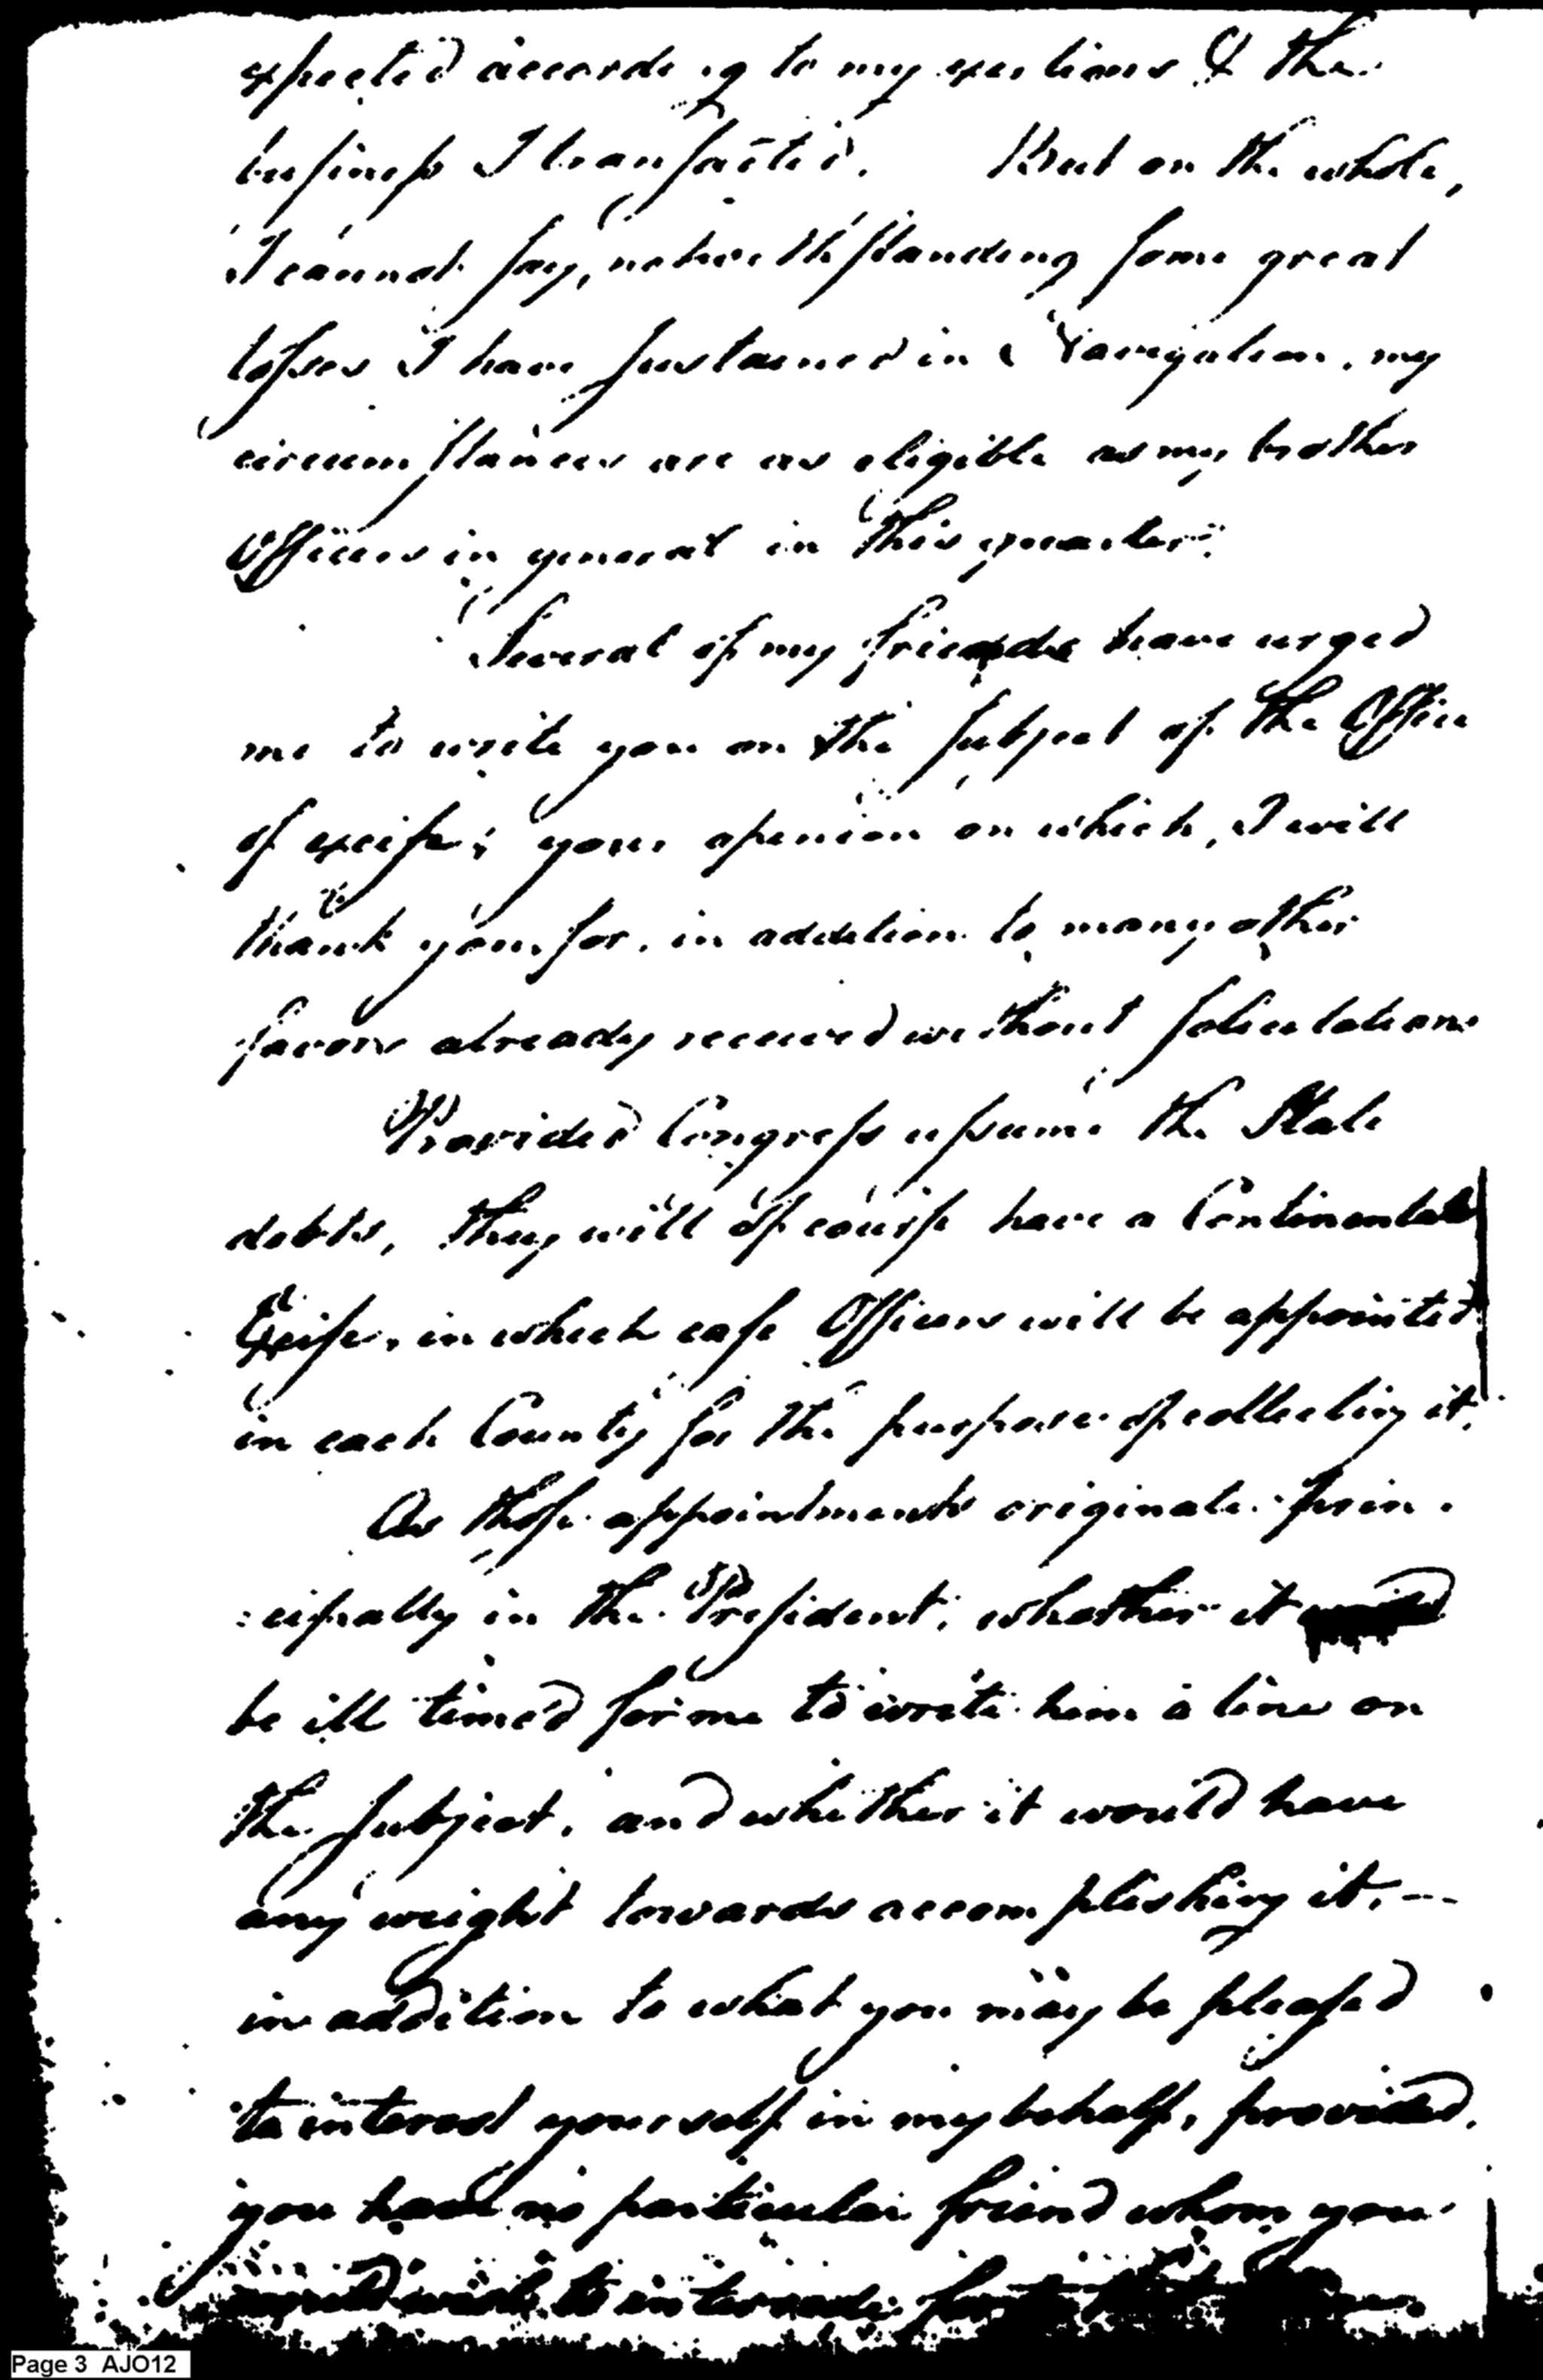 expected according to my exertions & the
business I transacted. But on the whole,
I cannot say, notwithstanding some great
losses I have sustained in Navigation, my
circumstances are as eligible as my brother
Officers in general in this quarter.
Several of my friends have urged
me to write you on the subject of the Office
of excise; your openion on which, I will
thank you for, in addition to many other
favors already received without solicitations
Provided Congress assume the State
debts, they will of course have a Continental
Excise, in which case Officers will be appointed
in each County for the purpose of collecting it.
As those appointments originate prin-
:cipally in the President, whether it would
be ill timed for me to write him a line on
the subject, and whether it would have
any weight towards accomplishing it,--
in addition to what you may be pleased
to interest yourself in my behalf, provided,
you have no particular friend whom you
would wish to intercede for
Page 3 AJO12